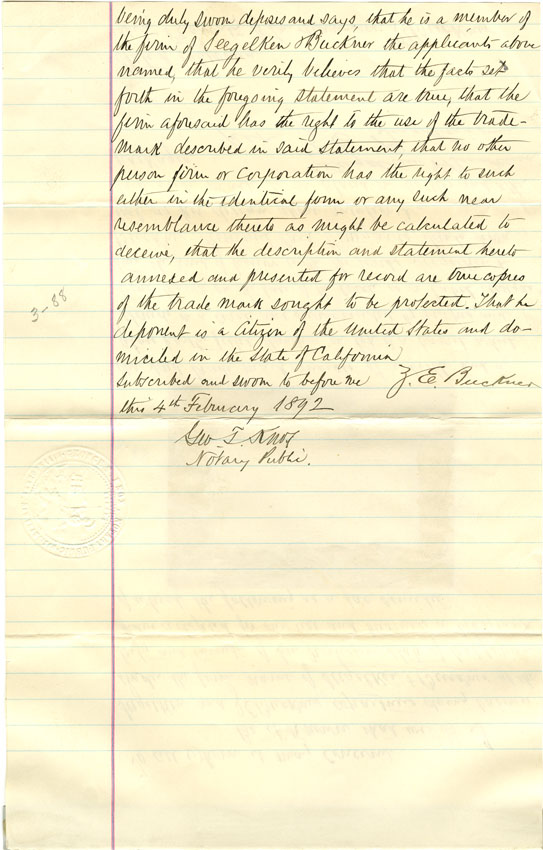 being duly sworn deposes and says, that he is a member of
the firm of Seegelken & Buckner the applicants above
named, that he verily believes that the facts set
forth in the foregoing statement are true, that the
firm aforesaid has the right to the use of the trade-
mark described in said statement, that no other
person firm or Corporation has the right to such
either in the identical form or any such near
resemblance thereto as might be calculated to
deceive, that the description and statement hereto
annexed and presented for record are true copies
of the trade mark sought to be protected. That he
deponent is a Citizen of the United States and do-
miciled in the State of California
Subscribed and sworn to before me Z. E. Buckner
this 4th February 1892
Geo T. Knox
Notary Public.
3-88